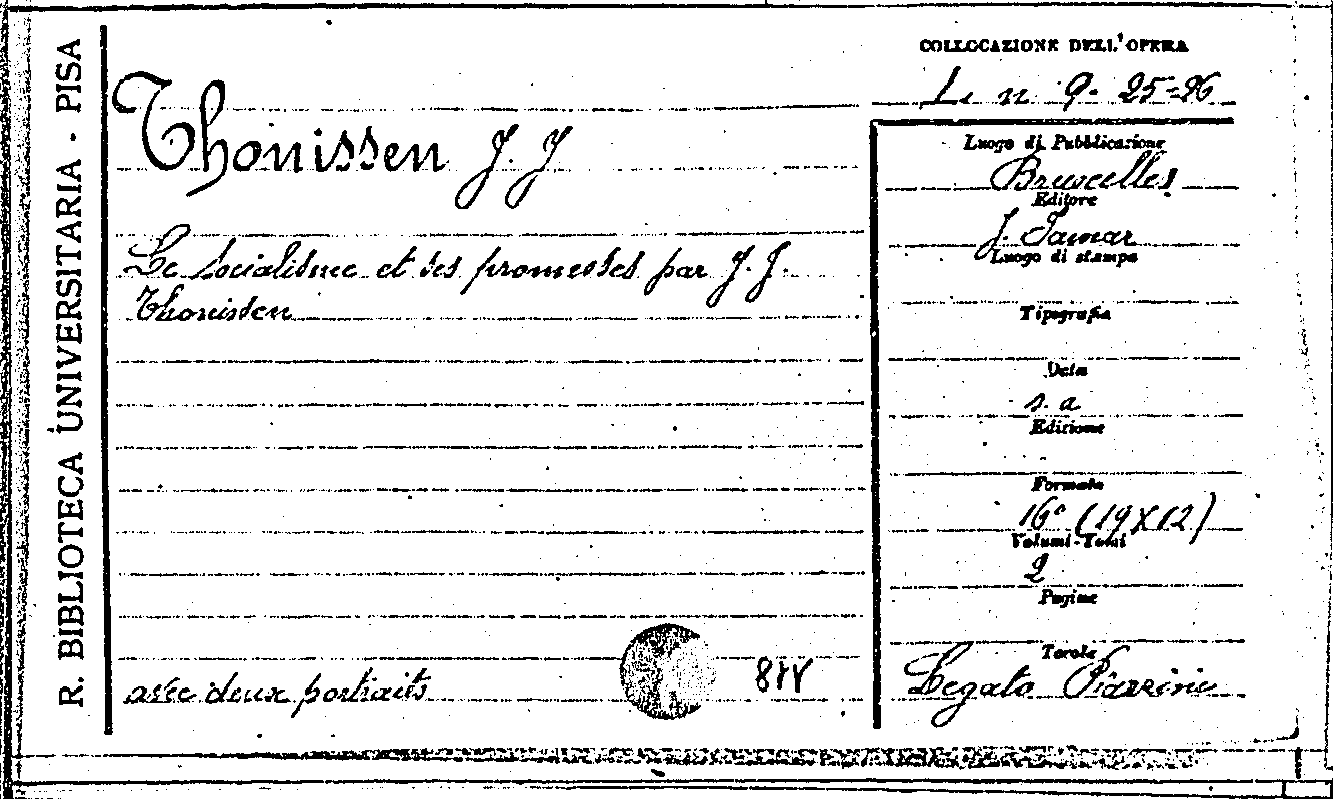 R. BIBLIOTECA UNIVERSITARIA - PISA
Thonissen J. J
Le socialisme et ses promesses par J. J.
Thonissen
avec deux portraits
COLLOCAZIONE DELL'OPERA
L. n 9. 25-26
Luogo di Pubblicazione
Bruxelles
Editore
J. Jamar
Luogo di stampa
Tipografia
Data
s. a
Edizione
Formato
16° (19X12)
Volumi-Tomi
2
Pagine
Tavole
Legato Piazzini